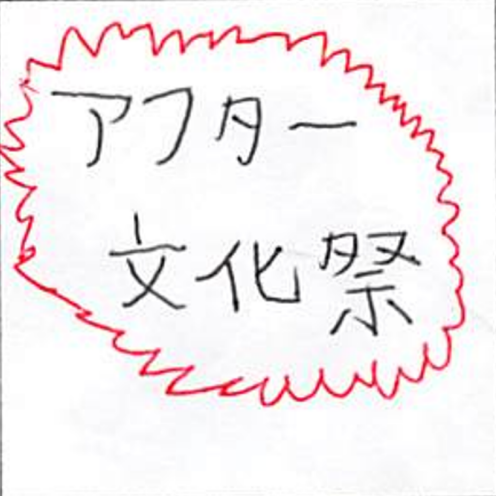 アフター
文化祭